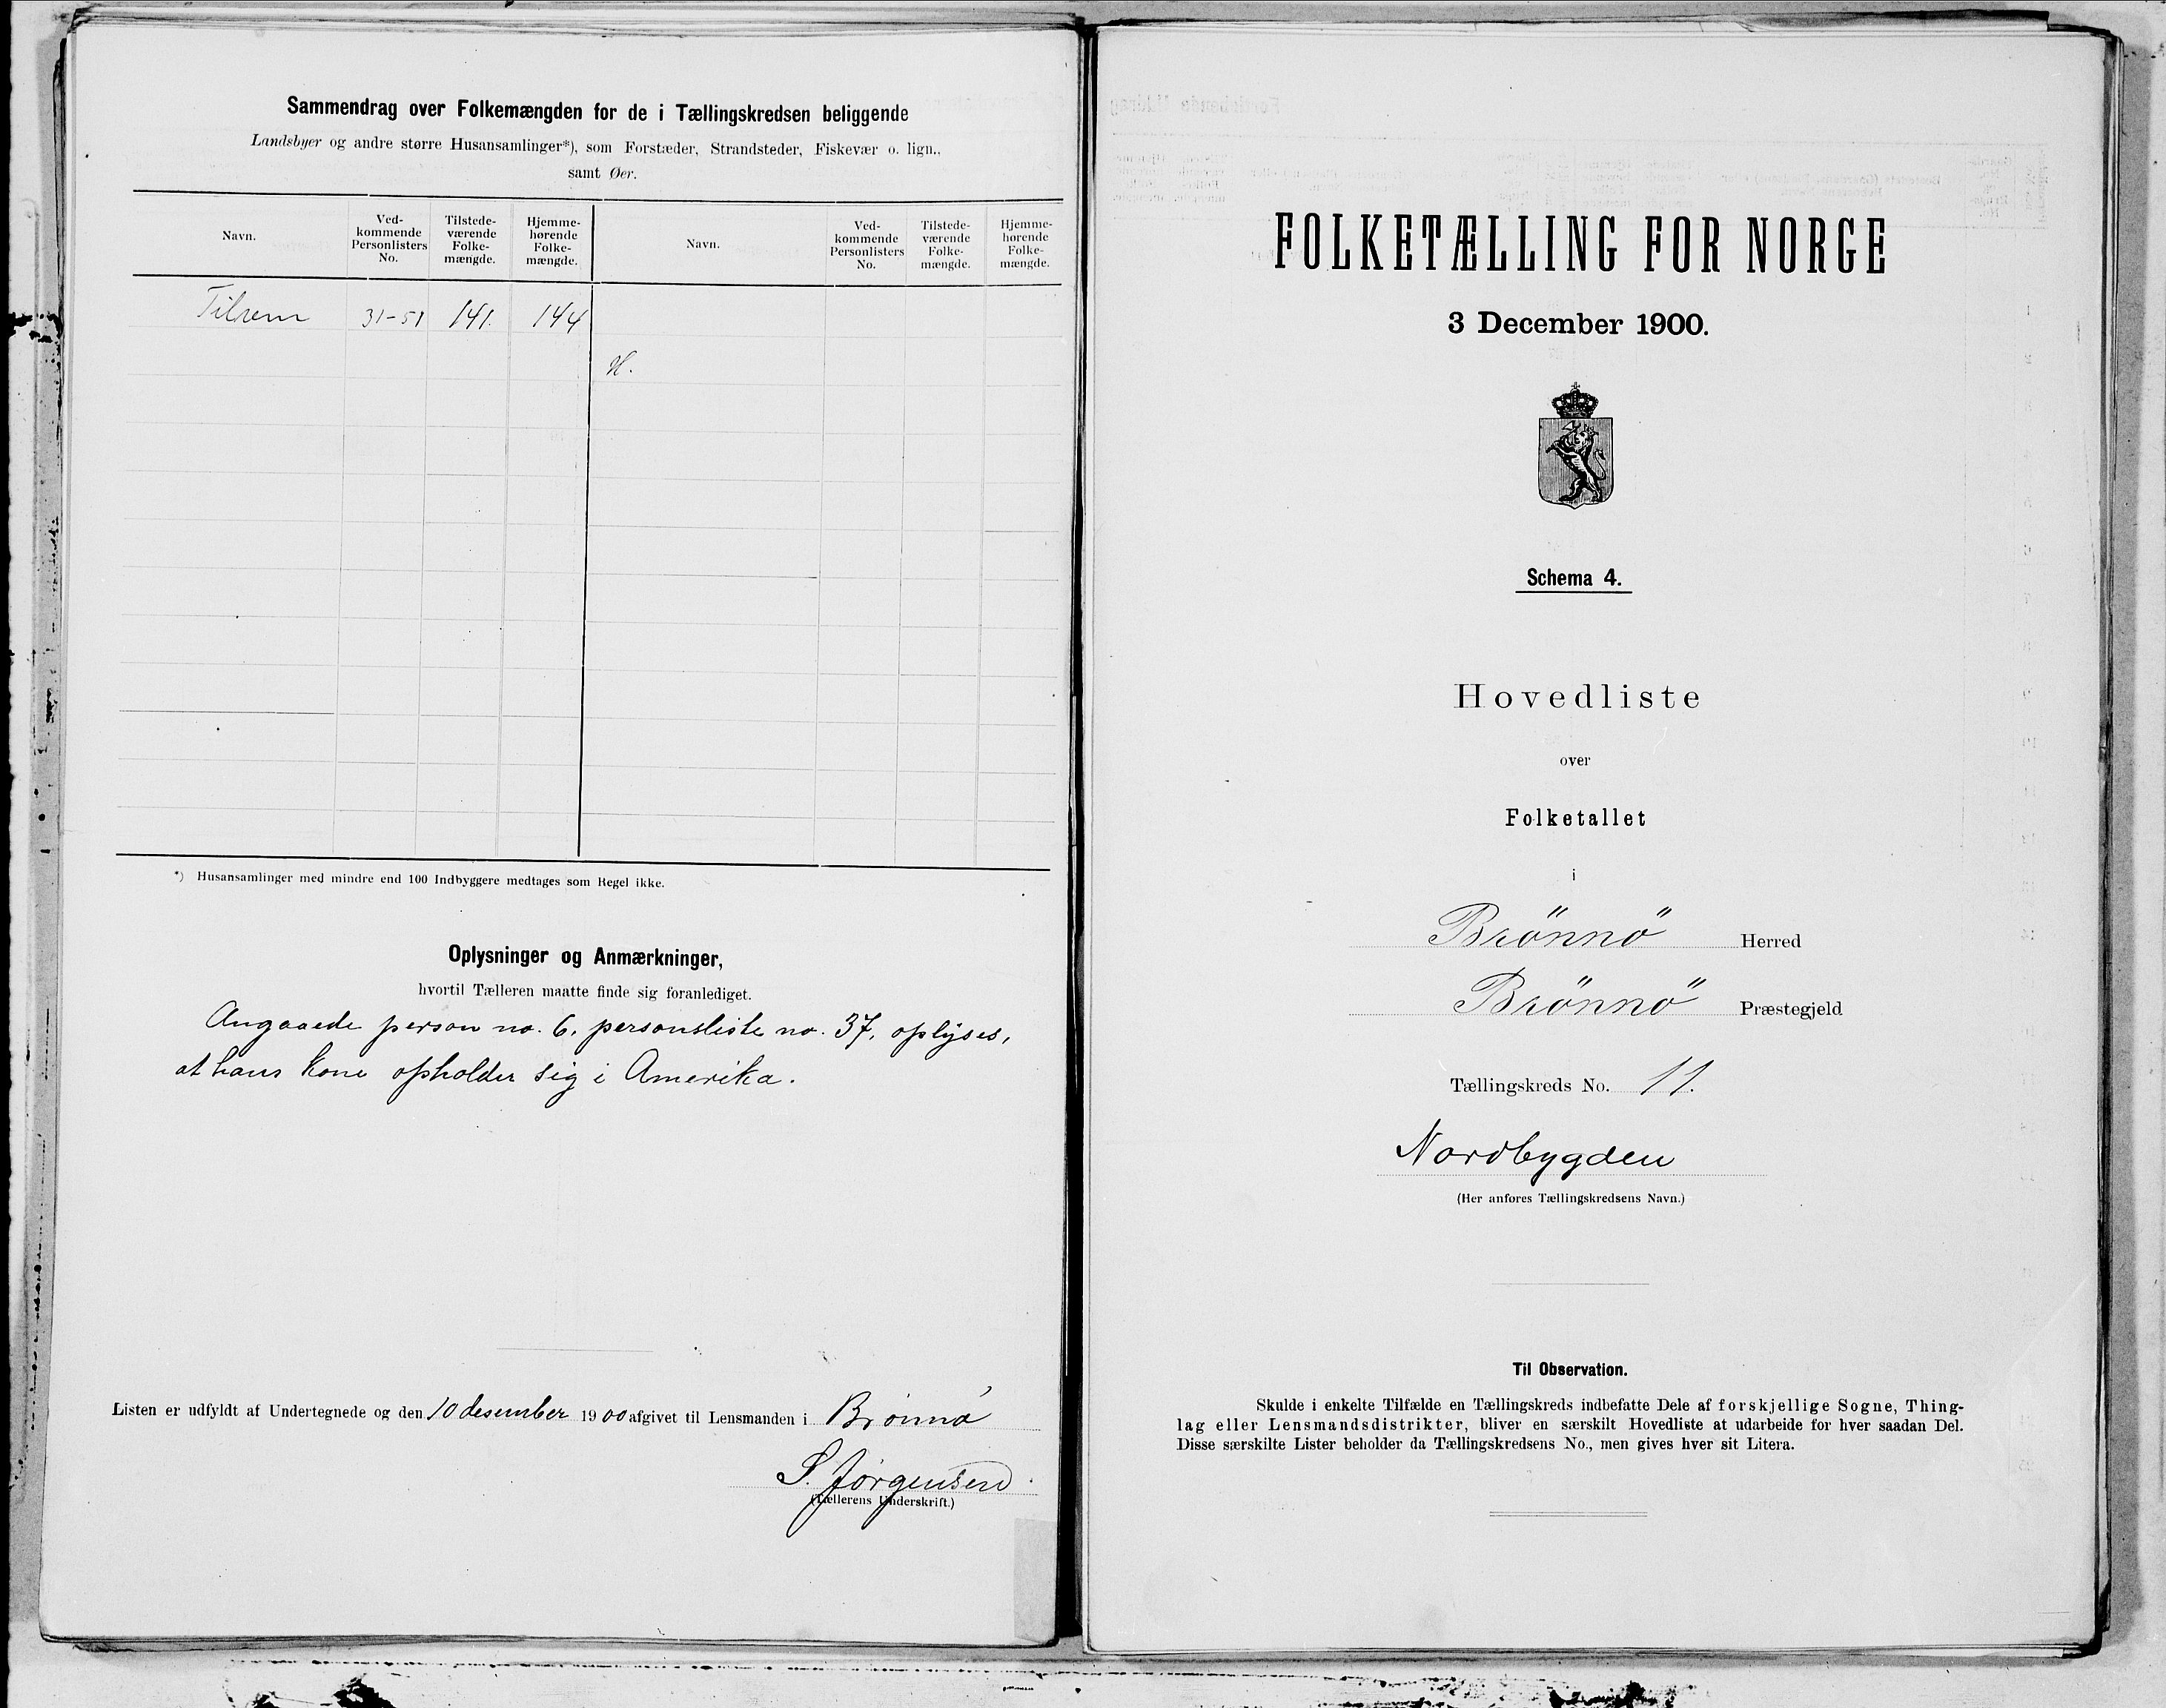 Sammendrag over Folkemængden for de i Tællingskredsen beliggende
Landsbyer og andre større Husansamlinger*), som Forstæder, Strandsteder, Fiskevær o. lign.,
samt Øer.
Navn.
Ved-
kommende
Personlisters
No.
Tilstede-
værende
Folke-
mængde.
Hjemme-
hørende
Folke-
mængde.
Navn.
Ved-
kommende
Personlisters
No.
Tilstede-
værende
Folke-
mængde.
Hjemme-
hørende
Folke-
mængde.
Tilrem 31-51 141. 144
H.
*) Husansamlinger med mindre end 100 Indbyggere medtages som Regel ikke.
Oplysninger og Anmærkninger,
hvortil Tælleren maatte finde sig foranlediget.
Angaaede person no. 6, personsliste no. 37, oplyses,
at hans kone opholder sig i Amerika.
Listen er udfyldt af Undertegnede og den 10 desember 1900 afgivet til Lensmanden i Brönnö
S. Jörgensen
(Tællerens Underskrift.)
FOLKETÆLLING FOR NORGE
3 December 1900.
Schema 4.
Hovedliste
over
Folketallet
i
Brönnö Herred
Brönnö Præstegjeld
Tællingskreds No. 11.
Nordbygden
(Her anføres Tællingskredsens Navn.)
Til Observation.
Skulde i enkelte Tilfælde en Tællingskreds indbefatte Dele af forskjellige Sogne, Thing-
lag eller Lensmandsdistrikter, bliver en særskilt Hovedliste at udarbeide for hver saadan Del.
Disse særskilte Lister beholder da Tællingskredsens No., men gives hver sit Litera.